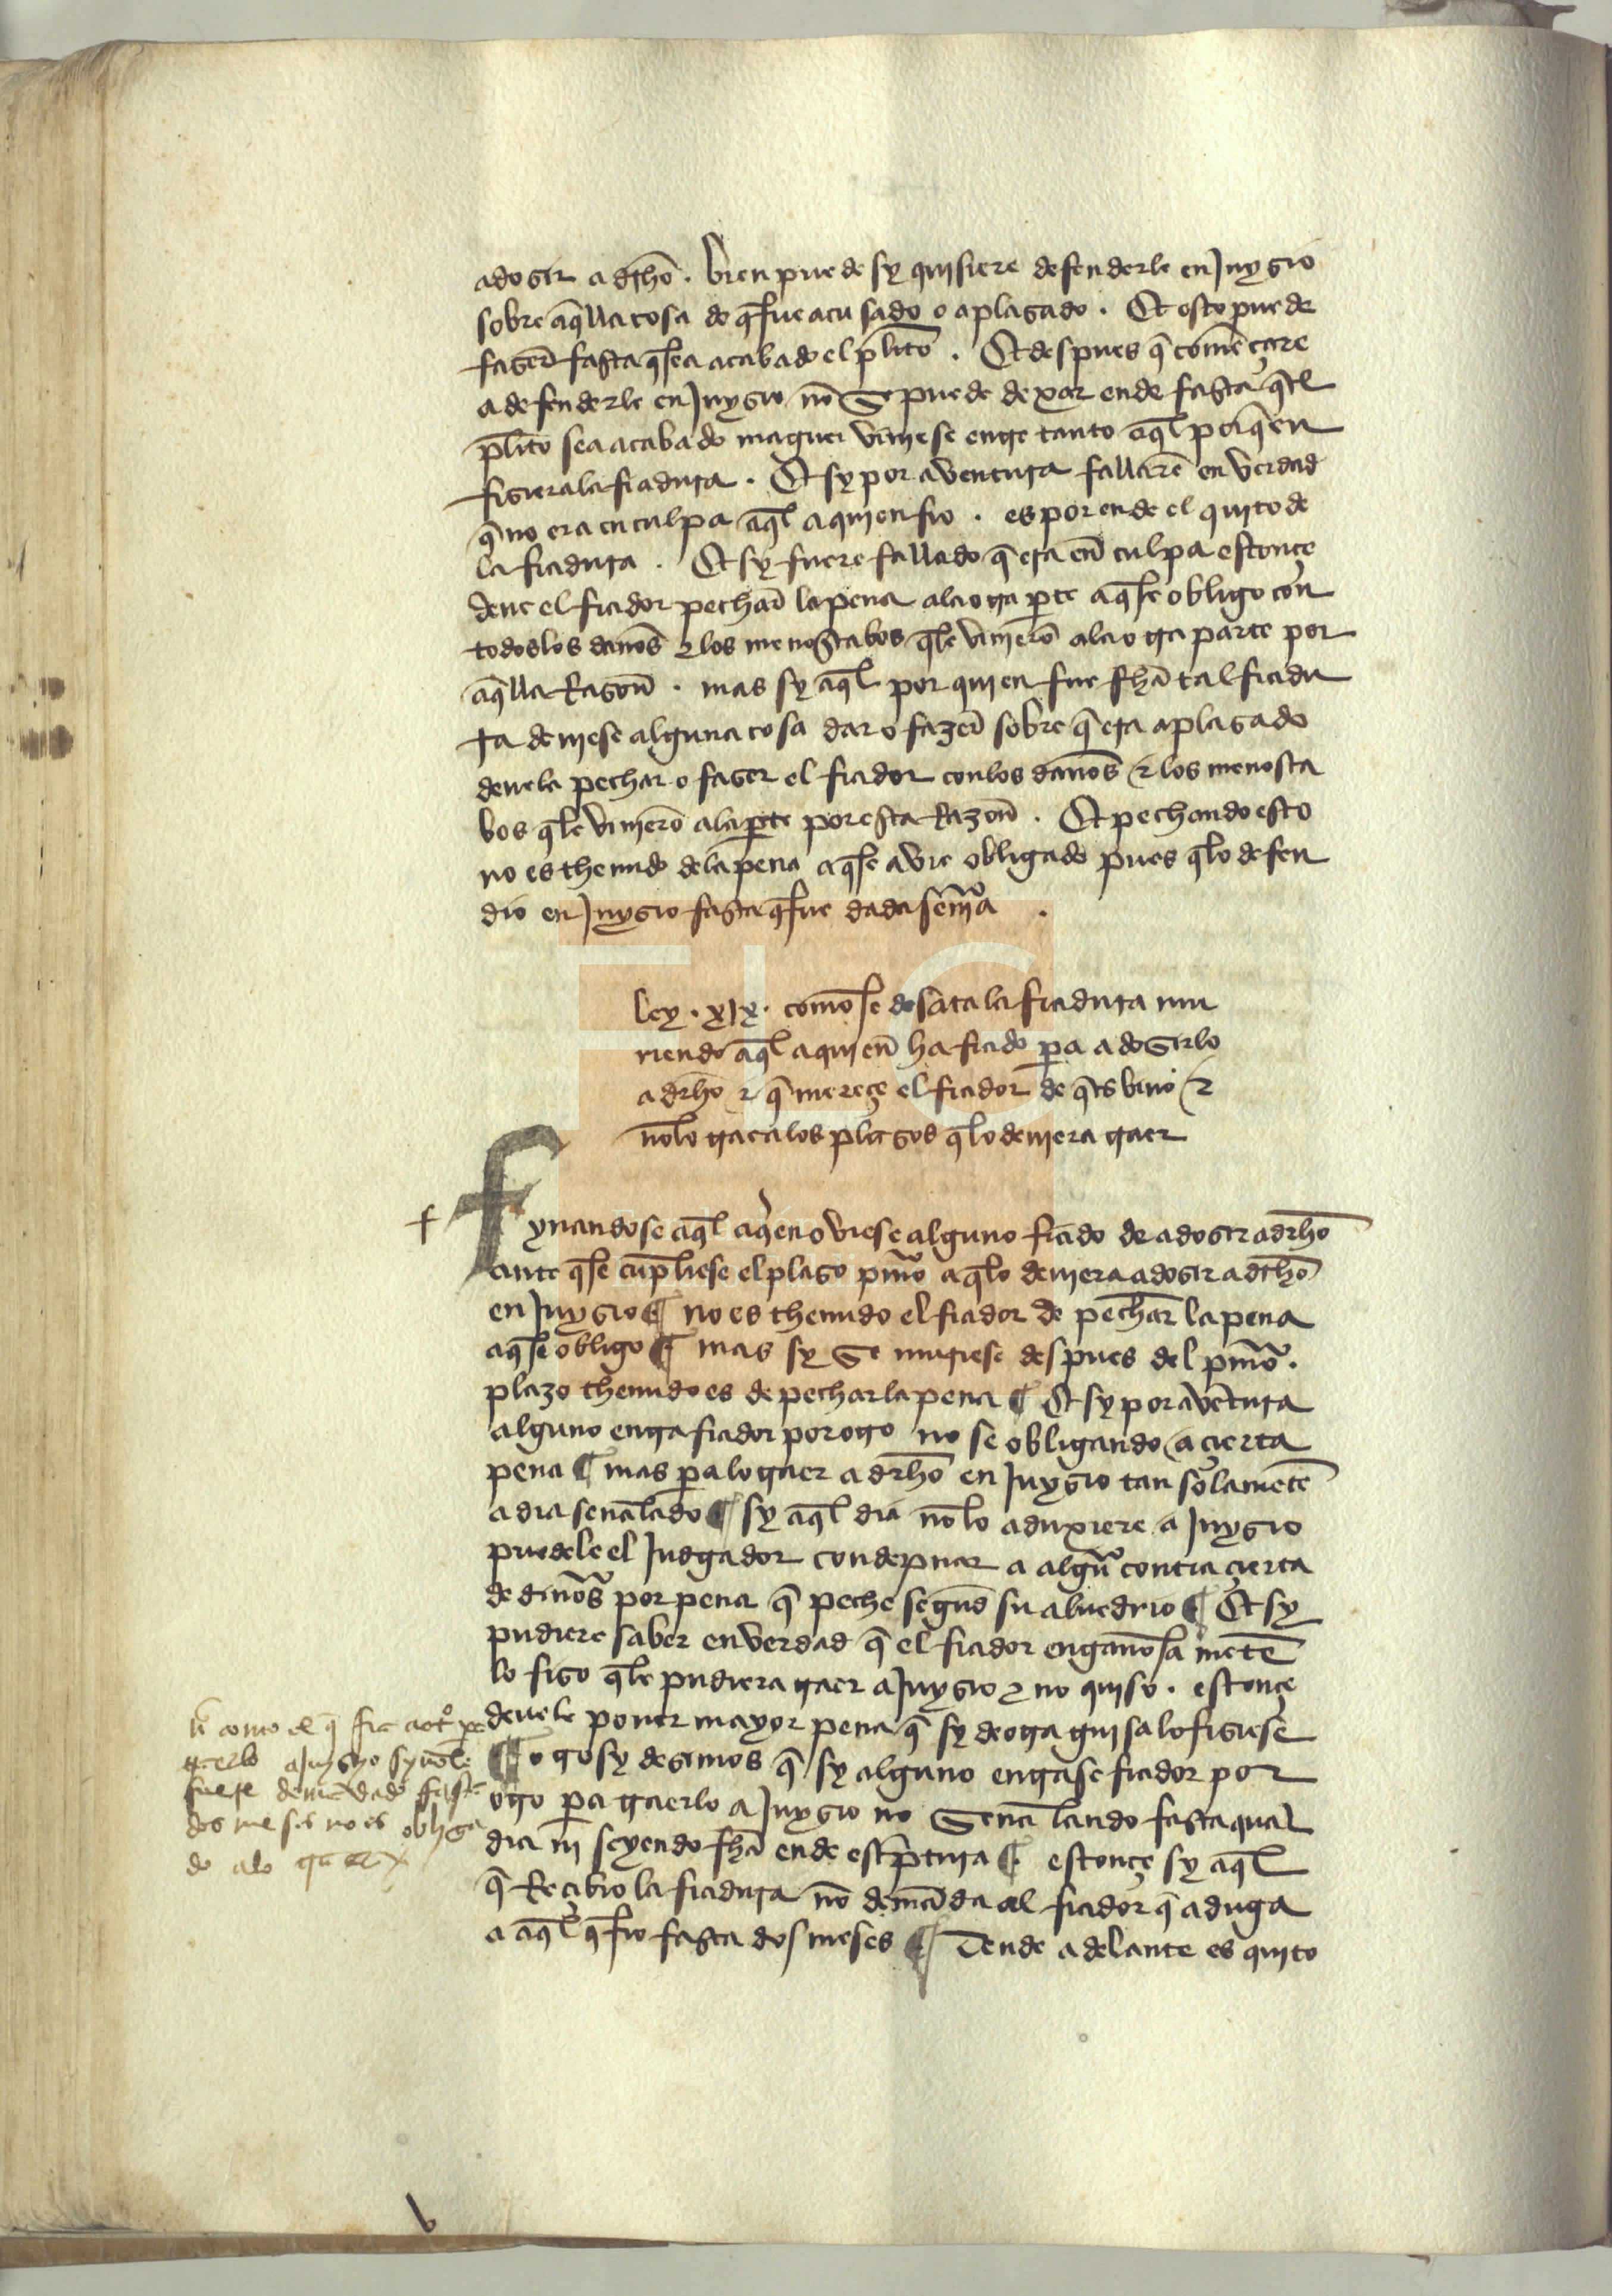 adosir a dr̃ho . bien puede sy quisiere defenderle en Juysio
sobre aq̃lla cosa de q̃ fue acusado o aplasado . Et esto puede
faser fasta q̃ sea acabado el pl̃ito . Et despues q̃ comẽçare
a defenderle en Juysio nõ se puede dexar ende fasta q̃l
pl̃ito sea acabado maguer viniese entre tanto aq̃l por q̃en
fisiera la fiadura . Et sy por aventura fallarẽ en verdad
q̃ no era en culpa aq̃l a quien fio . es por ende el quito de
la fiadura . Et sy fuere fallado q̃ era en culpa estonçe
deue el fiador pechar la pena a la otra p̃te a q̃ se obligo con
todos los daños & los menoscabos q̃ le vinierõ a la otra parte por
aq̃lla Rason . mas sy aq̃l por quien fue fh̃a tal fiadu
ra deuiese alguna cosa dar o fazer sobre q̃ era aplasado
deuela pechar o faser el fiador con los daños & los menosca
bos q̃ le vinierõ a la p̃te por esta Razon . Et pechando esto
no es thenudo de la pena a q̃ se avie obligado pues q̃ lo defen
dio en Juysio fasta q̃ fue dada señia .
Ley . xix . como se desata la fiadura mu
riendo aq̃l a quien ha fiado p̃a adosirlo
a dr̃ho & q̃ mereçe el fiador de q̃ es biuo &
nõ lo trae a los plasos q̃ lo deuiera traer
fynandose aq̃l a q̃en oviese alguno fiado de adosir a dr̃ho
ante q̃ se cũpliese el plaso pm̃o a q̃ lo deuiera adosir a dr̃ho
en Juysio ¶ no es thenudo el fiador de pechar la pena
a q̃ se obligo ¶ mas sy se muriese despues del pm̃o .
plazo thenudo es de pechar la pena ¶ Et sy por avẽtura
alguno entra fiador por otro no se obligando a çierta
pena ¶ mas p̃a lo traer a dr̃ho en Juysio tan solamẽte
a dia señalado ¶ sy aq̃l dia nõ lo aduxiere a Juysio
puedele el Judgador condepnar a algũa contia çierta
de diños por pena q̃ peche segũd su aluedrio ¶ Et sy
pudiere saber en verdad q̃ el fiador engañosa mẽte
lo fiso q̃ le pudiera traer a Juysio & no quiso . estonçe
deuele poner mayor pena q̃ sy de otra guisa lo fisiese
¶ otrosy desimos q̃ sy alguno entrase fiador por
otro p̃a traerlo a Juysio no señalando fasta qual
dia ni seyendo fh̃a ende escp̃tura ¶ estonçe sy aq̃l
q̃ Reçibio la fiadura nõ demãda al fiador q̃ aduga
a aq̃l q̃ fio fasta dos meses ¶ Dende adelante es quito
como el q̃ fia a otº pa
traerlo a Juysyo sy nõ le
fuere demãdado fasta
dos meses no es obliga
do a lo traer